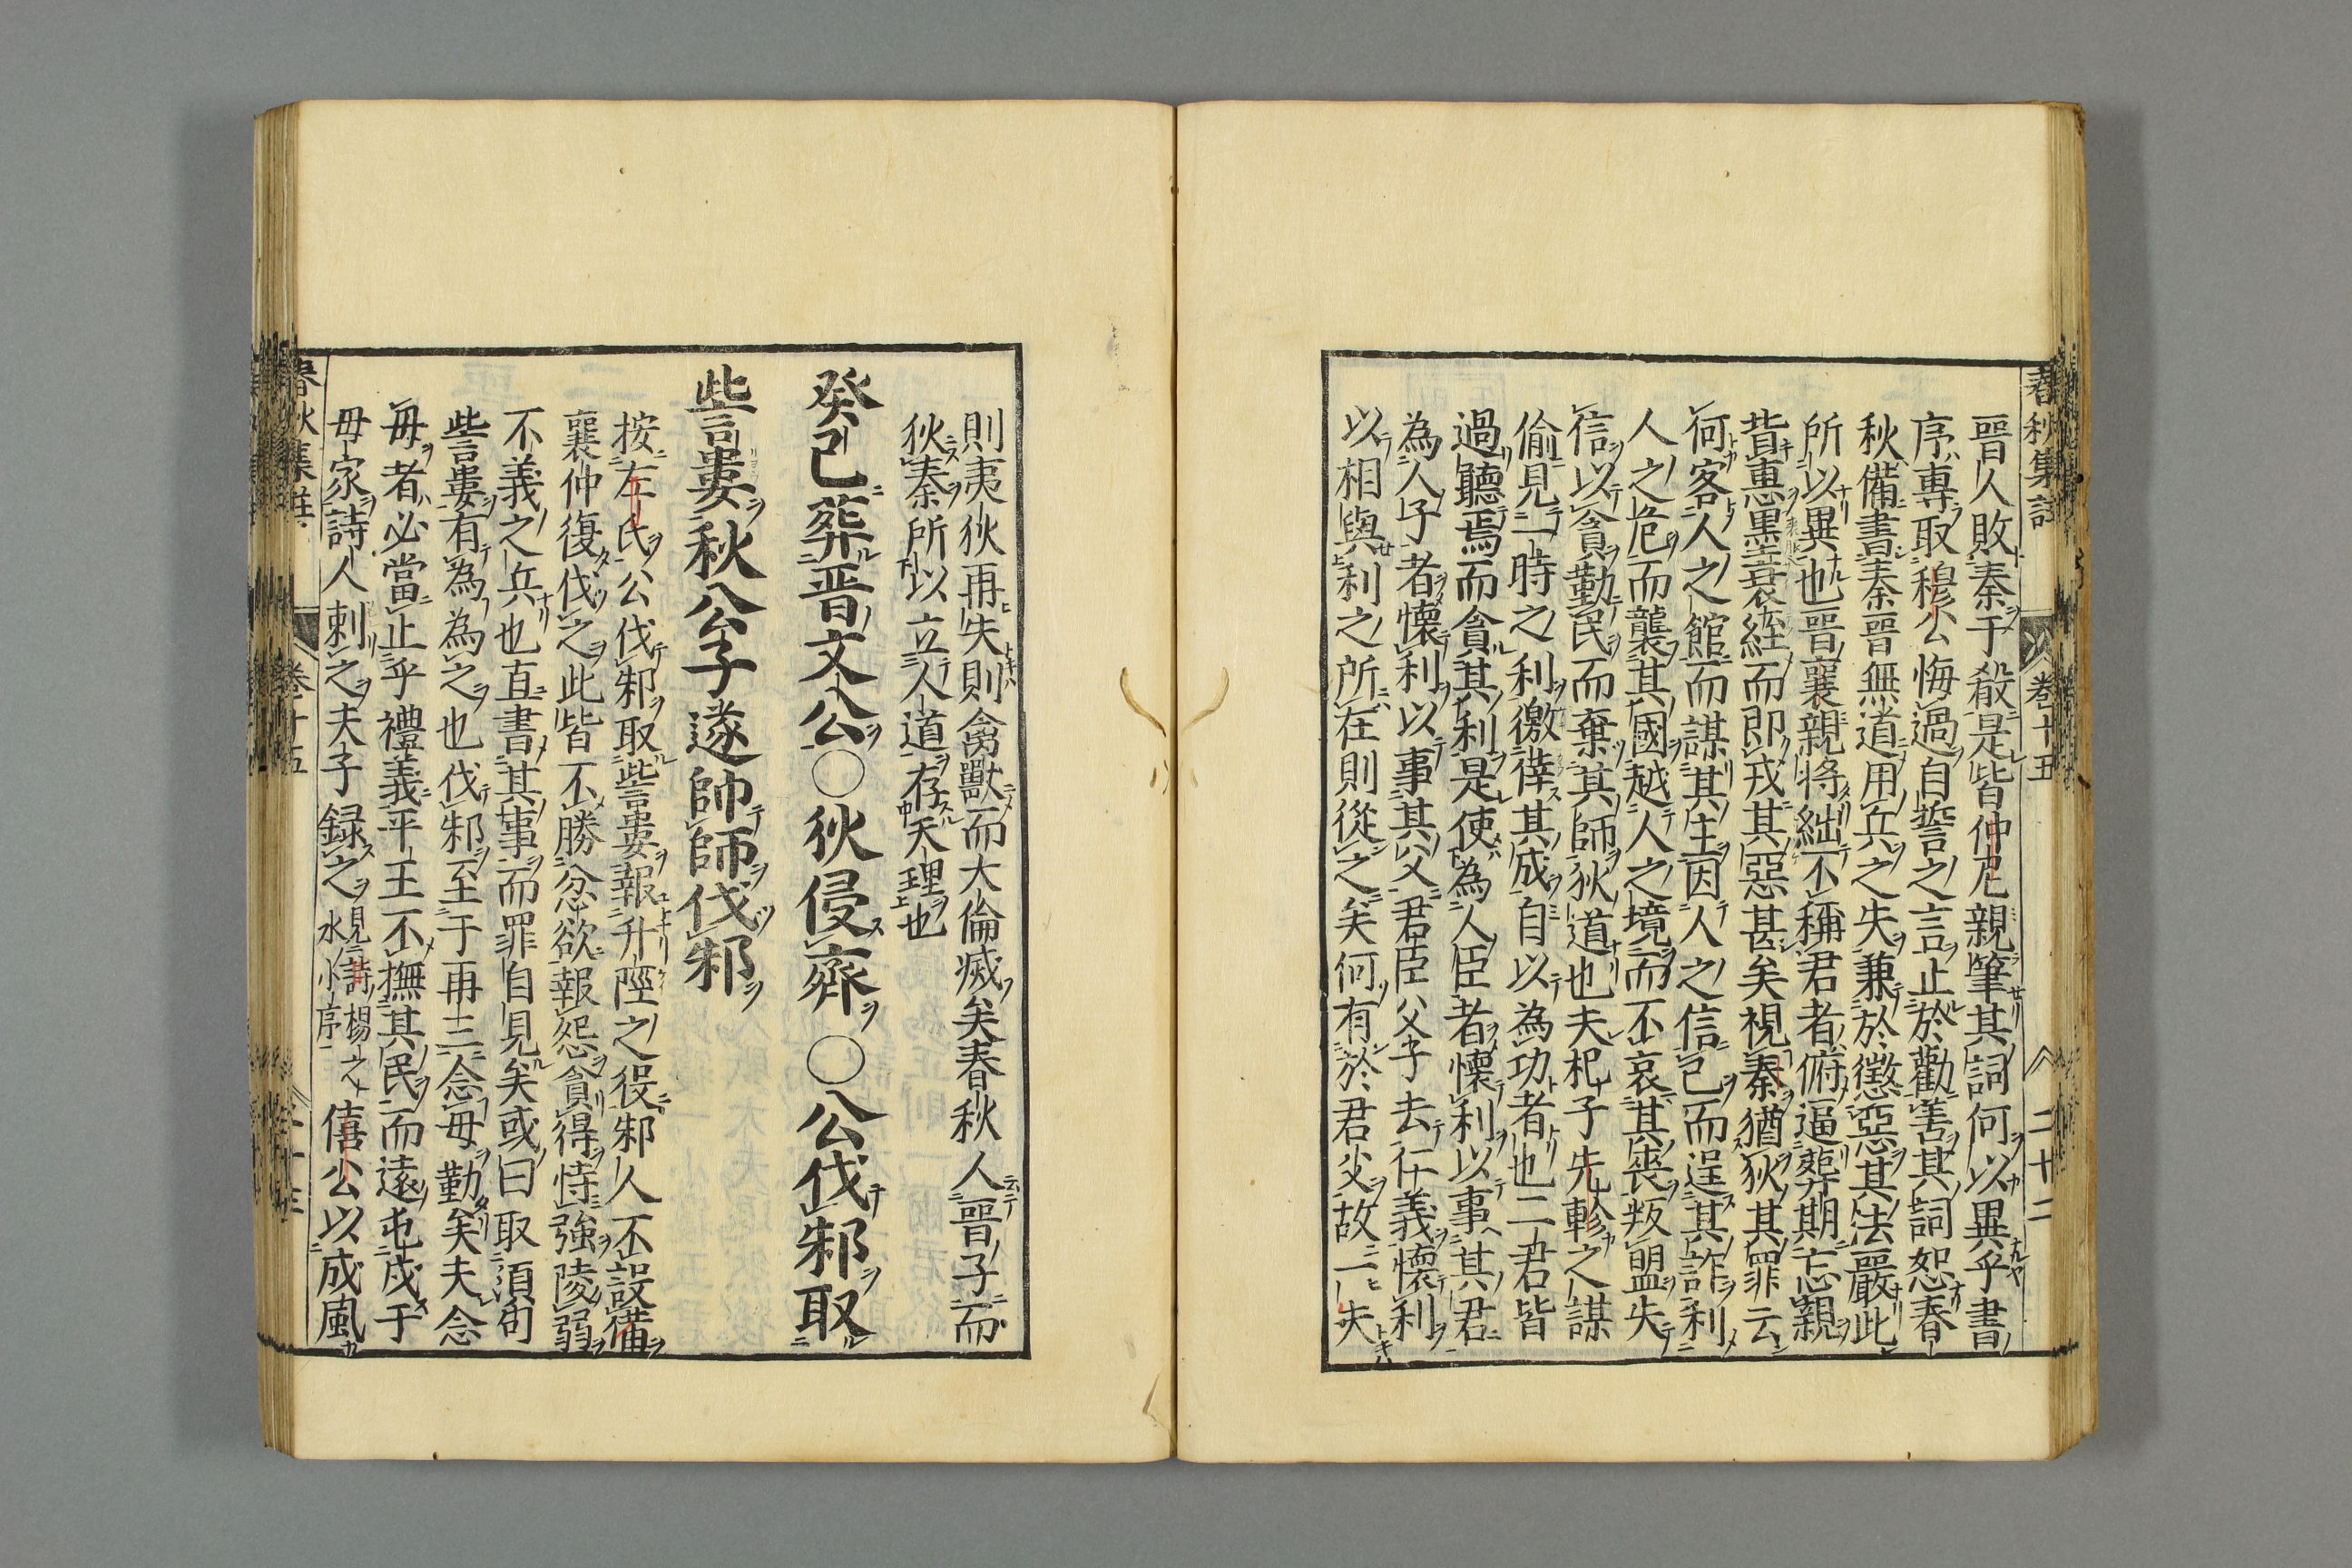 春秋集註 卷十五 二十二
晉人敗秦于殽是皆仲尼親筆其詞何以異乎書
序專取穆公悔過自誓之言止於勸善其詞恕春
秋備書秦晉無道用兵之失兼於懲惡其法嚴此
所以異也晉襄親將絀不稱君者俯逼葬期忘親
背惠墨衰絰而即戎其惡甚矣視秦猶狄其罪云
何客人之館而謀其主因人之信己而逞其詐利
人之危而襲其國越人之境而不哀其喪叛盟失
信以貪勤民而棄其師狄道也夫杞子先軫之謀
偷見一時之利徼倖其成自以為功者也二君皆
過聽焉而貪其利是使為人臣者懷利以事其君
為人子者懷利以事其父君臣父子去仁義懷利
以相與利之所在則從之矣何有於君父故一失
則夷狄再失則禽獸而大倫滅矣春秋人晉子而
狄秦所以立人道存天理也
癸巳葬晋文公○狄侵齊○公伐邾取
訾婁秋公子遂帥師伐邾
按左氏公伐邾取訾婁報升陘之役邾人不設備
襄仲復伐之此皆不勝忿欲報怨貪得恃強陵弱
不義之兵也直書其事而罪自見矣或曰取須句
訾婁有為為之也伐邾至于再三念母勤矣夫念
母者必當止乎禮義平王不撫其民而遠屯戍于
母家詩人刺之夫子録之見詩揚之水小序僖公以成風
春秋集註 卷十五